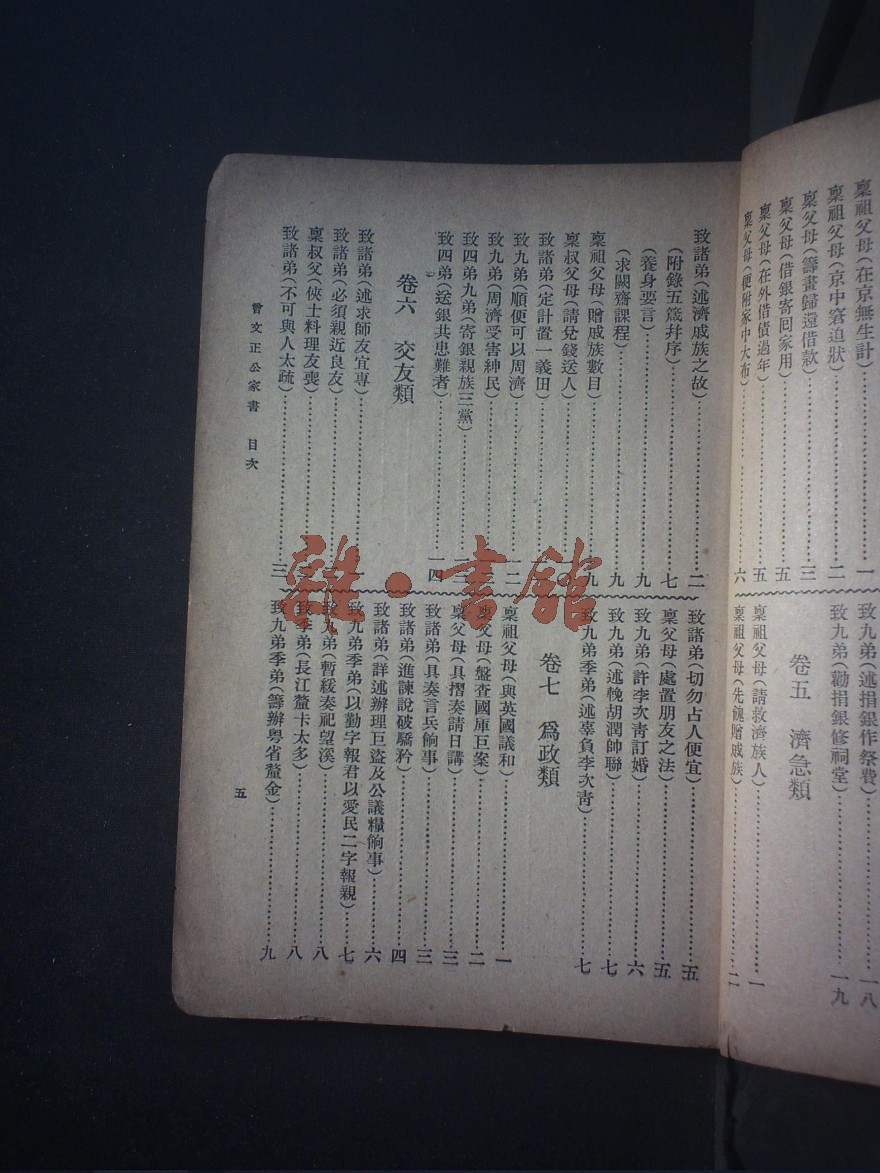 稟祖父母(在京無生計)⋯⋯一
稟祖父母(京中窘迫狀)⋯⋯二
稟父母(籌畫歸還借款)⋯⋯三
稟父母(借銀寄回家用)⋯⋯五
稟父母(在外借債過年)⋯⋯五
稟父母(便附家中大布)⋯⋯六
致九弟(述捐銀作祭費)⋯⋯一八
致九弟(勸捐銀修祠堂)⋯⋯一九
卷五 濟急類
稟祖父母(請救濟族人)⋯⋯一
稟祖父母(先餽贈戚族)⋯⋯二
致諸弟(述濟戚族之故)⋯⋯二
(附錄五箴幷序)⋯⋯七
(養身要言)⋯⋯九
(求闕齋課程)⋯⋯九
稟祖父母(贈戚族數目)⋯⋯九
稟叔父母(請兌錢送人)
致諸弟(定計置一義田)
致九弟(順便可以周濟)⋯⋯一二
致九弟(周濟受害紳民)
致四弟九弟(寄銀親族三黨)
致四弟(送銀共患難者)⋯⋯一四
卷六 交友類
致諸弟(述求師友宜專)
致諸弟(必須親近良友)
稟叔父(俠士料理友喪)
致諸弟(不可與人太疏)⋯⋯三
致諸弟(切勿占人便宜)⋯⋯五
稟父母(處置朋友之法)⋯⋯五
致九弟(許李次青訂婚)⋯⋯六
致九弟(述輓胡潤帥聯)⋯⋯七
致九弟季弟(述辜負李次青)⋯⋯七
卷七 爲政類
稟祖父母(與英國議和)⋯⋯一
稟父母(盤查國庫巨案)⋯⋯二
稟父母(具摺奏請日講)⋯⋯三
致諸弟(具奏言兵餉事)⋯⋯三
致諸弟(進諫說破驕矜)⋯⋯四
致諸弟(詳述辦理巨盜及公議糧餉事)⋯⋯六
致九弟季弟(以勤字報君以愛民二字報親)⋯⋯七
致九弟(暫緩奏祀望溪)⋯⋯八
致季弟(長江釐卡太多)⋯⋯八
致九弟季弟(籌辦粤省釐金)⋯⋯九
曾文正公家書 目次
五
雜·書館